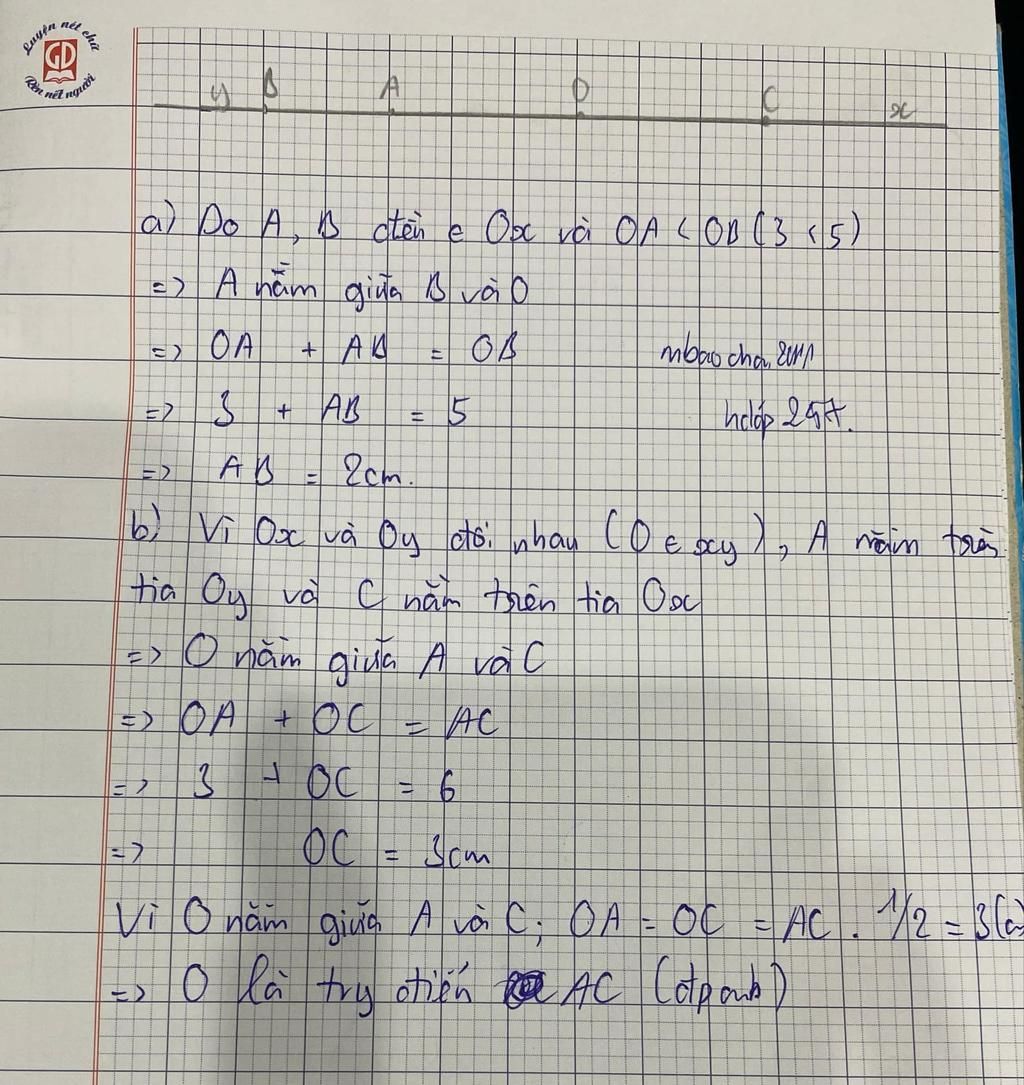 Luyện nét chữ
GD
Rèn nết người
y B A O C x
a) Do A, B đều ∈ Ox và OA < OB (3 < 5)
=> A nằm giữa B và O
=> OA + AB = OB
=> 3 + AB = 5
hdốp 247.
=> AB = 2cm.
b) Vì Ox và Oy đối nhau (O ∈ xy), A nằm trên
tia Oy và C nằm trên tia Ox
=> O nằm giữa A và C
=> OA + OC = AC
=> 3 + OC = 6
=> OC = 3cm
Vì O nằm giữa A và C; OA = OC = AC . 1/2 = 3(c)
=> O là try điến AC (đpcmb)